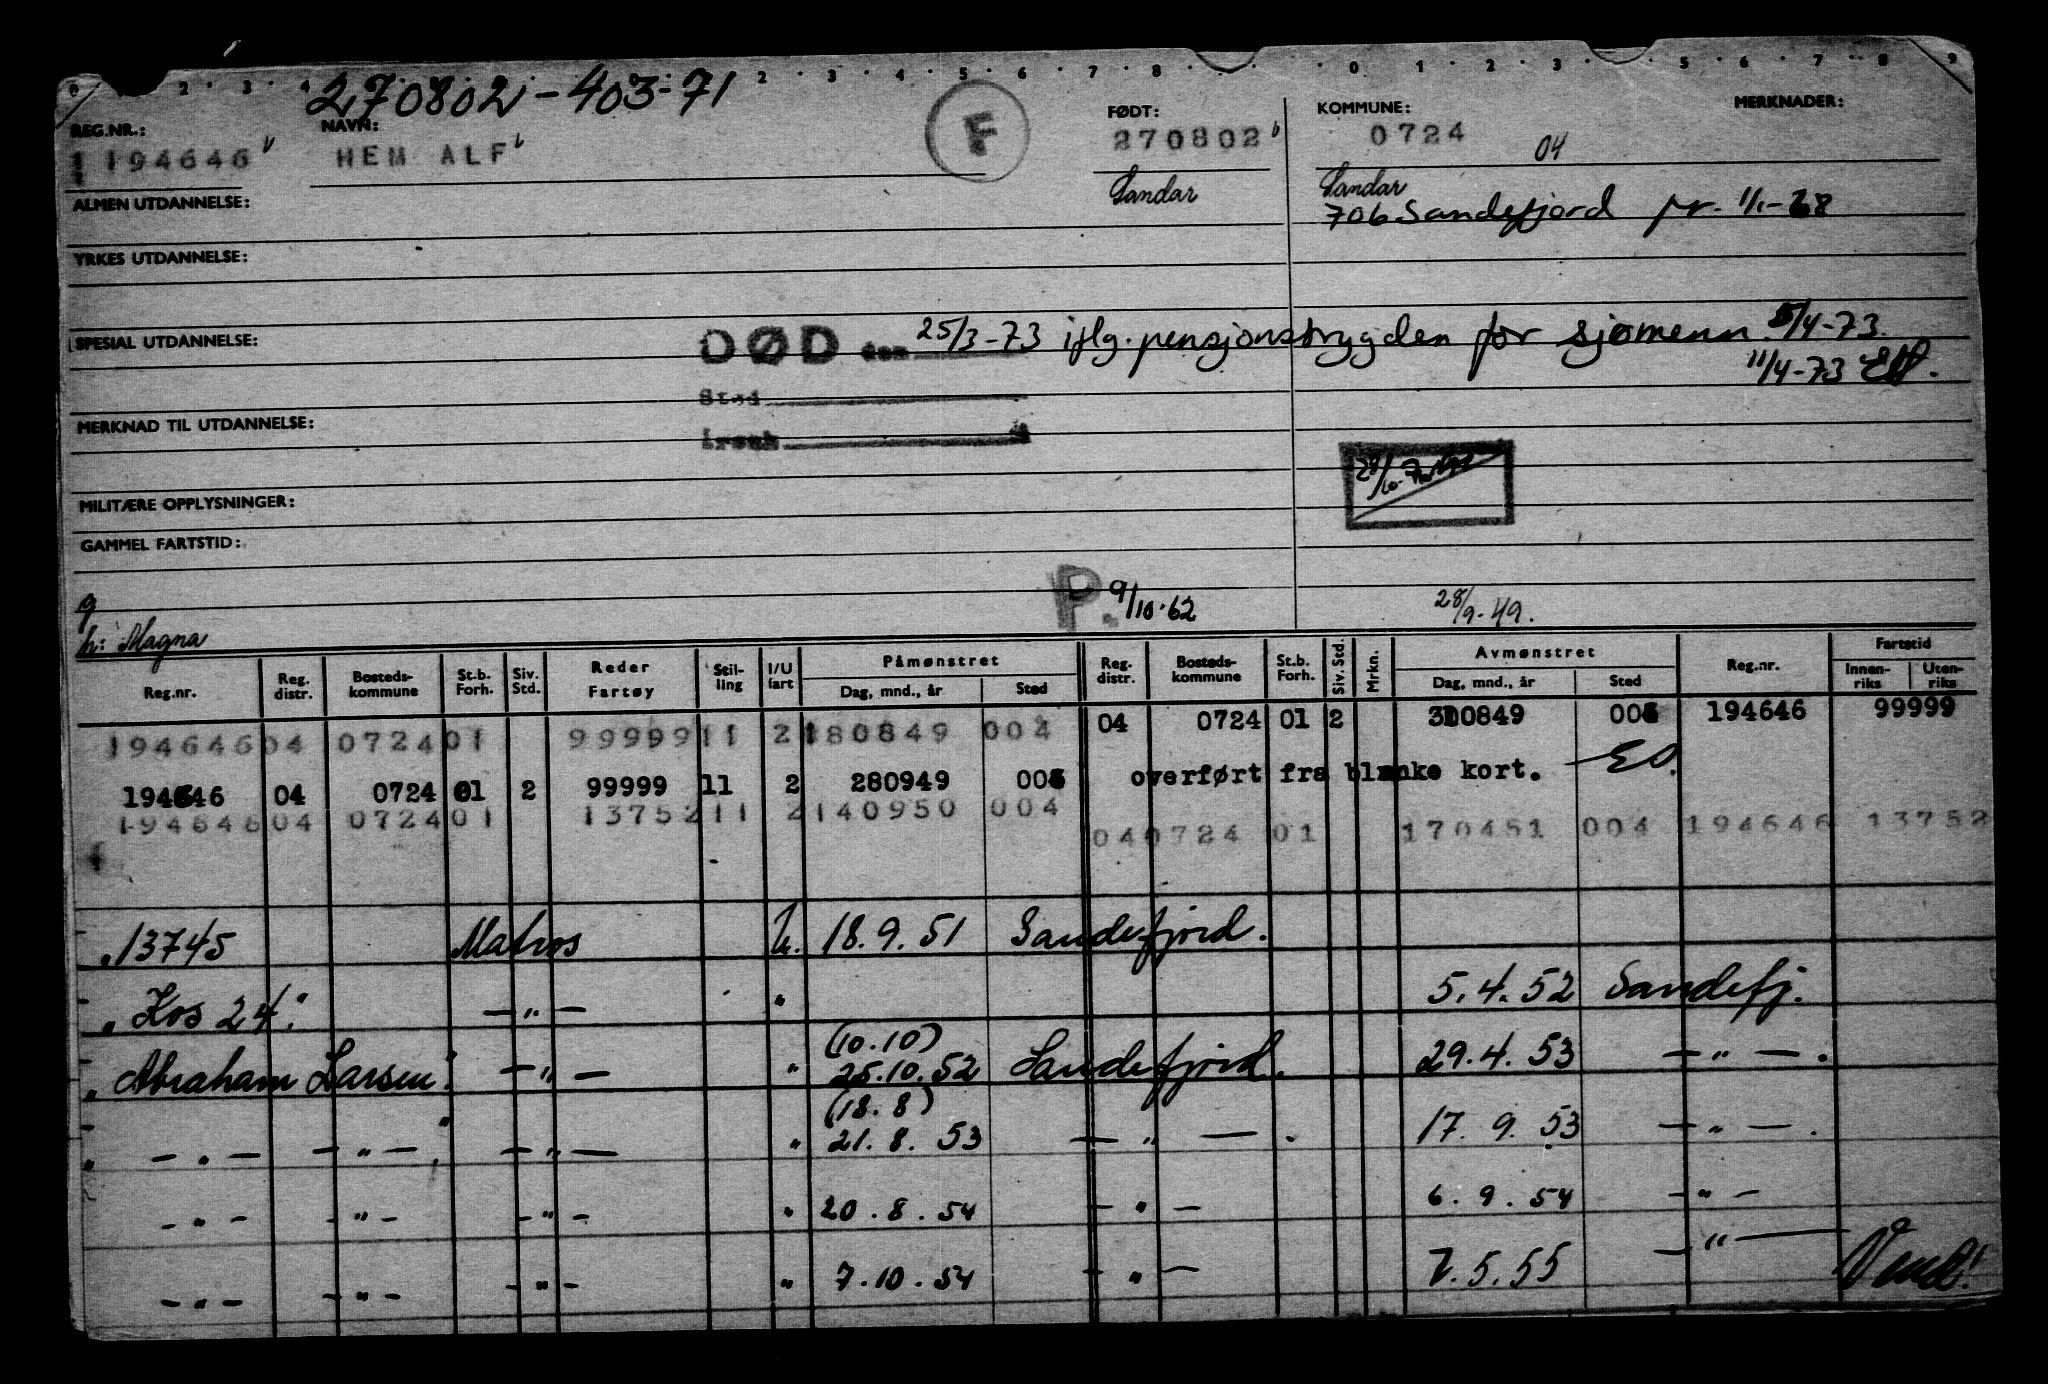 270802-403-71
REG.NR.: NAVN: F FØDT: KOMMUNE: MERKNADER:
194646 HEM ALF 270802 0724 04
Sandar Sandar
ALMEN UTDANNELSE: 706 Sandefjord pr. 1/1-68
YRKES UTDANNELSE:
SPESIAL UTDANNELSE: DØD den 25/3-73 iflg. pensjonstrygden for sjømenn 5/4-73.
11/4-73
Sted
MERKNAD TIL UTDANNELSE: Årsak
MILITÆRE OPPLYSNINGER:
GAMMEL FARTSTID:
g P. 9/10-62 28/9-49.
h: Magna
Reg.nr. Reg. distr. Bosteds- kommune St.b. Forh. Siv. Std. Reder Fartøy Stil- ling I/U fart Påmønstret Dag, mnd., år Sted Reg. distr. Bosteds- kommune St.b. Forh. Siv. Std. Mrkn. Avmønstret Dag, mnd., år Sted Reg.nr. Fartstid Innen- riks Uten- riks
194646 04 0724 01 99999 11 2 180849 004 04 0724 01 2 310849 194646 99999
194646 04 0724 01 2 99999 11 2 280949 overført fra blanke kort. EO.
194646 04 0724 01 13752 11 2 140950 004 04 0724 01 170451 004 194646 13752
"13745 Matros U. 18.9.51 Sandefjord.
"Kos 24." — " — " 5.4.52 Sandefj.
(10.10)
"Abraham Larsen" — " — " 25.10.52 Sandefjord. 29.4.53 — " — .
(18.8)
" — " — — " — " — " — " 21.8.53 — " — . 17.9.53 — " — .
— " — — " — — " — " 20.8.54 — " — 6.9.54 — " —
— " — — " — — " — " 7.10.54 — " — 7.5.55 — " —
Vend!